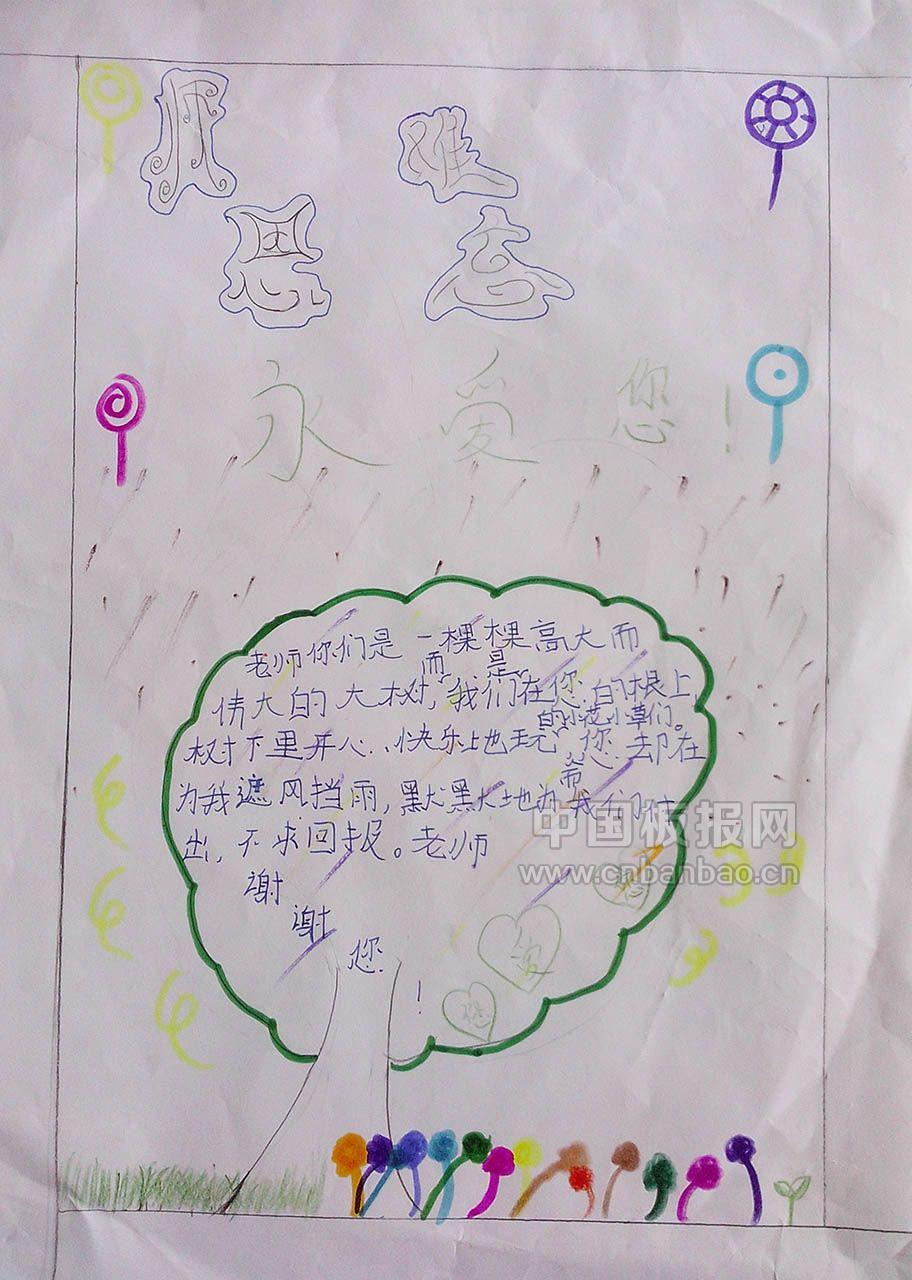 师 难
恩 忘
永爱您!
老师你们是一棵棵高大而
而 是
伟大的大树,我们在您的根上,
的小花小草们。
树下里开心、快乐地玩,您却在
而
为我遮风挡雨,默默地为我们付
出,不求回报。老师
谢
谢
您
!
爱
您
中国板报网
www.cnbanbao.cn